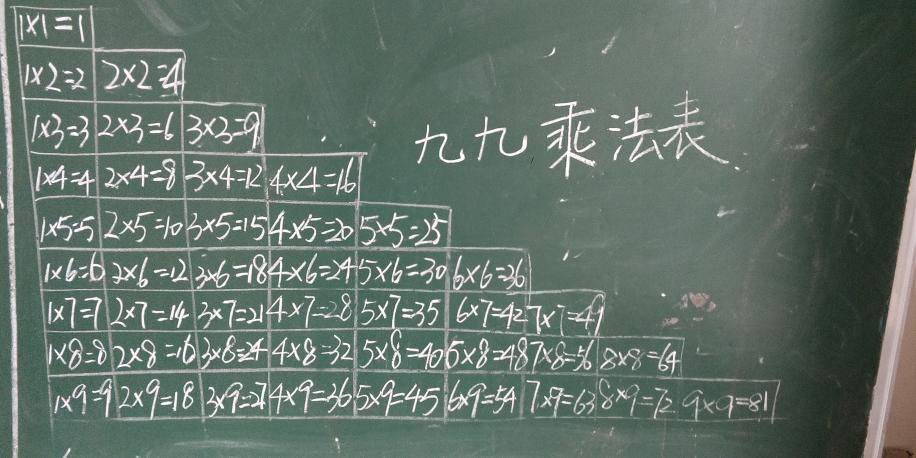 1×1=1
1×2=2 2×2=4
1×3=3 2×3=6 3×3=9
九九乘法表
1×4=4 2×4=8 3×4=12 4×4=16
1×5=5 2×5=10 3×5=15 4×5=20 5×5=25
1×6=6 2×6=12 3×6=18 4×6=24 5×6=30 6×6=36
1×7=7 2×7=14 3×7=21 4×7=28 5×7=35 6×7=42 7×7=49
1×8=8 2×8=16 3×8=24 4×8=32 5×8=40 6×8=48 7×8=56 8×8=64
1×9=9 2×9=18 3×9=27 4×9=36 5×9=45 6×9=54 7×9=63 8×9=72 9×9=81